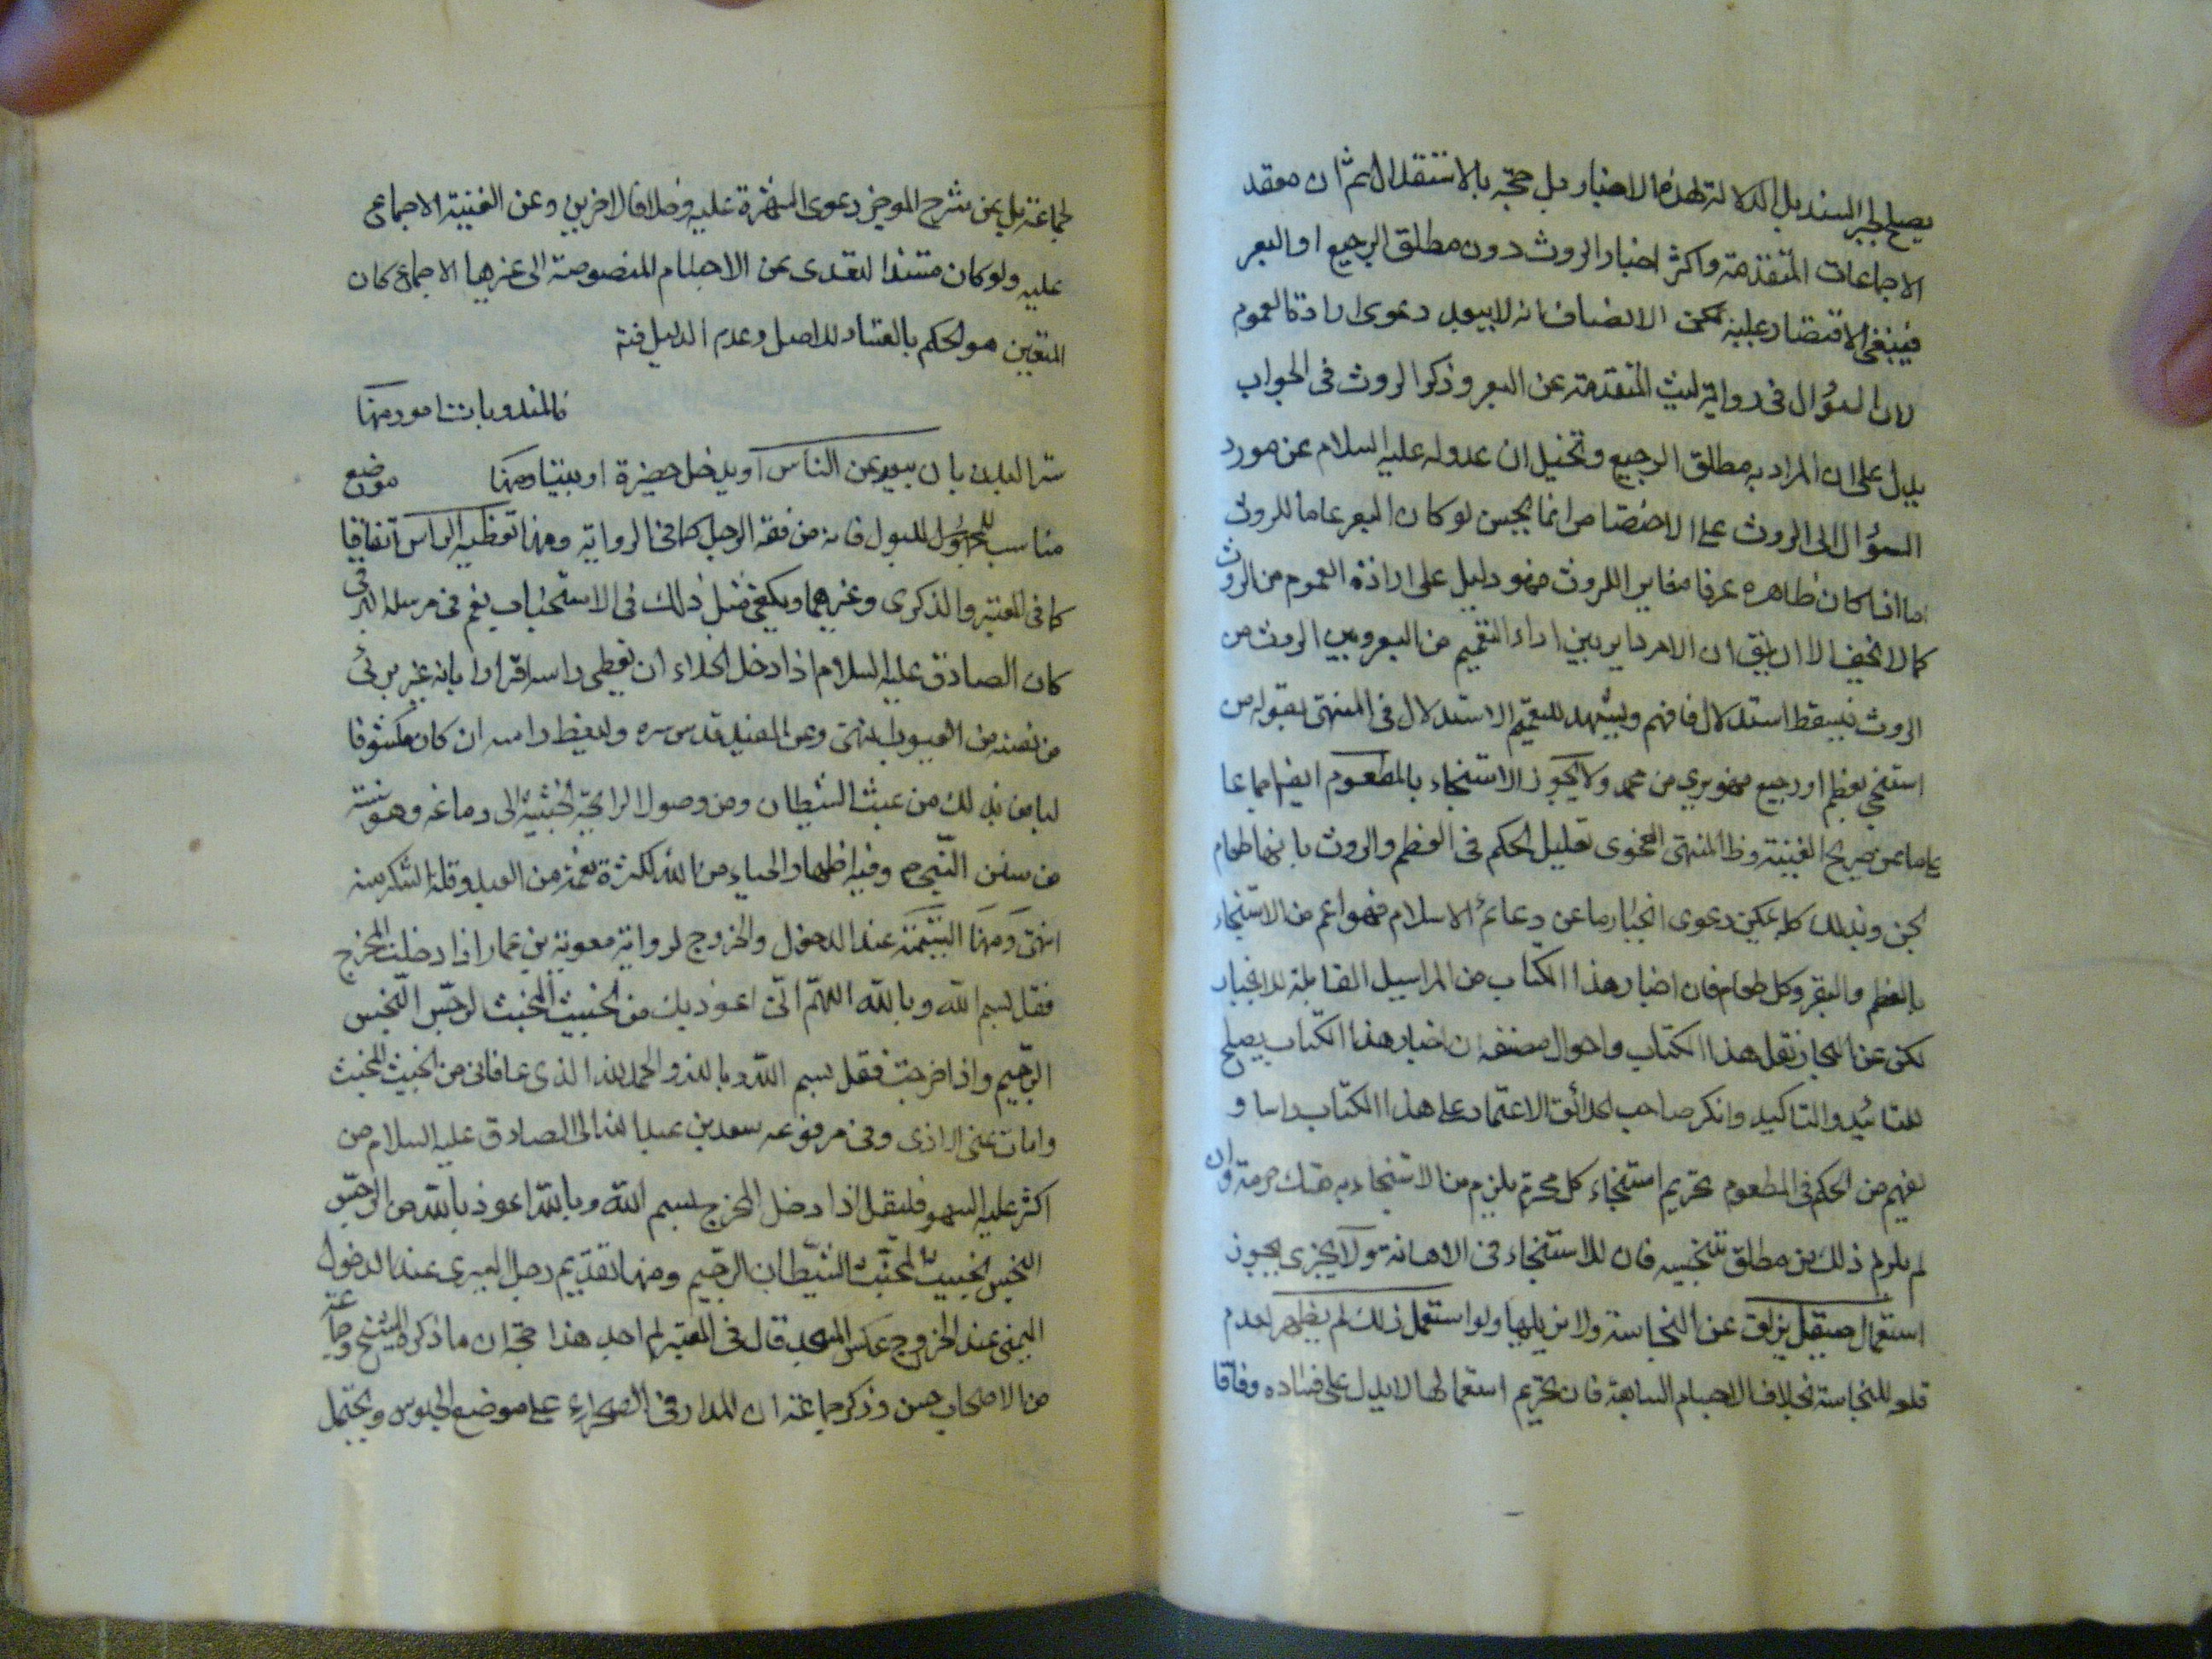 يصلح لجبر السند بل الدلالة لهذه الاخبار بل حجة بالاستقلال ثم ان معقد
الاجماعات المتقدمة واكثر اخبار الروث دون مطلق الرجيع او البعر
فينبغى الاقتصار عليه لكن الانصاف انه لا يبعد دعوى ارادة العموم
لان السؤال فى رواية ليث المتقدمة عن البعر وذكر الروث فى الجواب
يدل على ان المراد به مطلق الرجيع وتخيل ان عدوله عليه السلام عن مورد
السؤال الى الروث على الاختصاص انما يحسن لو كان البعر عاما للروث
اما اذا كان ظاهره عرفا مغايرا للروث فهو دليل على ارادة العموم من الروث
كما لا يخفى الا ان يق ان الامر داير بين اداء التعميم من البعر وبين الروث من
الروث فيسقط استدلال فافهم ويشهد للتعميم الاستدلال فى المنتهى بقوله ص
استنجى بعظم او رجيع فهو برى من محمد ولا يجوز الاستنجاء بالمطعوم ايضا اجماعا
عن صريح الغنية وظ المنتهى الفحوى تعليل الحكم فى العظم والروث بانهما طعام
الجن وبذلك كله يمكن دعوى انجبار ما عن دعائم الاسلام فهو اعم من الاستنجاء
بالعظم والبعر وكل طعام فان اخبار هذا الكتاب من المراسيل القابلة للانجبار
لكن عن البحار نقل هذا الكتاب واحوال مصنفه ان اخبار هذا الكتاب يصلح
للتائيد والتاكيد وانكر صاحب الحدائق الاعتماد على هذا الكتاب راسا و
يفهم من الحكم فى المطعوم تحريم استنجاء كل محترم يلزم من الاستنجاء به هتك حرمته وان
لم يلزم ذلك من مطلق تنجيسه فان للاستنجاء فى الاهانة ولا يجزى يجوز
استعمال صيقل يزلق عن النجاسة ولا يزيلها ولو استعمل ذلك لم يطهر لعدم
قلعه للنجاسة بخلاف الاجسام السابقة فان تحريم استعمالها لا يدل على فساده وفاقا
لجماعة بل عن شرح الموجز دعوى الشهرة عليه وخلافا لاخرين وعن الغنية الاجماع
عليه ولو كان مستندا لتعدى عن الاجسام المنصوصة الى غيرها الاجماع كان
المتعين هو الحكم بالفساد للاصل وعدم الدليل فته
فالمندوبات امور منها
ستر البدن بان يبعد عن الناس او يدخل حفيرة او بيتا ومنها موضع
مناسب للبول فانه من فقه الرجل كما فى الرواية ومنها تغطية الراس اتفاقا
كما فى المعتبر والذكرى وغيرهما ويكفى مثل ذلك فى الاستحباب نعم فى مرسلة البرقى
كان الصادق عليه السلام اذا دخل الخلاء ان يغطى راسه اقرارا بانه غير برئ
من نفسه من العيوب انتهى وعن المفيد قدس سره وليغط راسه ان كان مكشوفا
ليامن بذلك من عبث الشيطان ومن وصول الرائحة الخبيثة الى دماغه وهو سنة
من سنن النبى ص وفيه اظهار الحياء من الله لكثرة نعمه من العبد وقلة الشكر منه
انتهى ومنها التسمية عند الدخول والخروج لرواية معوية بن عمار اذا دخلت المخرج
فقل بسم الله وبالله اللهم انى اعوذ بك من الخبيث المخبث الرجس النجس
الرجيم واذا خرجت فقل بسم الله وبالله والحمد لله الذى عافانى من الخبيث المخبث
واماط عنى الاذى وفى مرفوعه سعد بن عبد الله الى الصادق عليه السلام من
اكثر عليه السهو فليقل اذا دخل المخرج بسم الله وبالله اعوذ بالله من الرجس
النجس الخبيث المخبث الشيطان الرجيم ومنها تقديم رجل اليسرى عند الدخول
اليمنى عند الخروج عكس المسجد قال فى المعتبر لم اجد هذا حجة ان ما ذكره الشيخ وجماعة
من الاصحاب حسن وذكر جماعة ان المدار فى الصحراء على موضع الجلوس ويحتمل